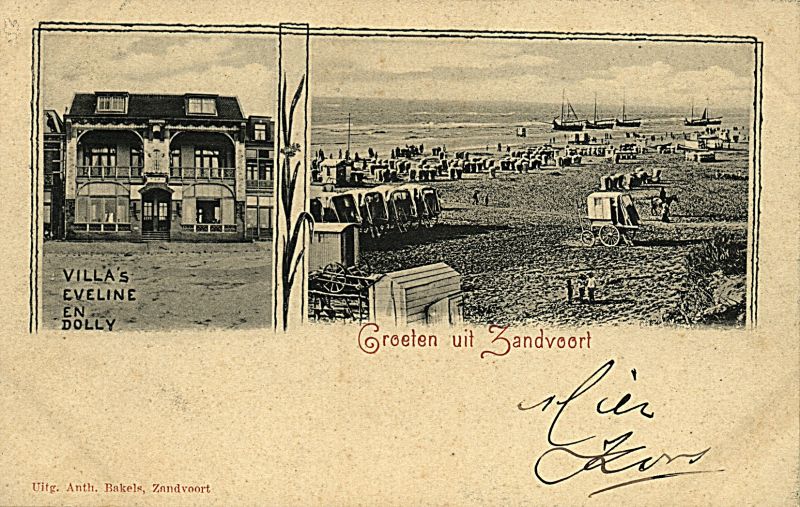 VILLA'S
EVELINE
EN
DOLLY
Groeten uit Zandvoort
Mier
Kors
Uitg. Anth. Bakels, Zandvoort